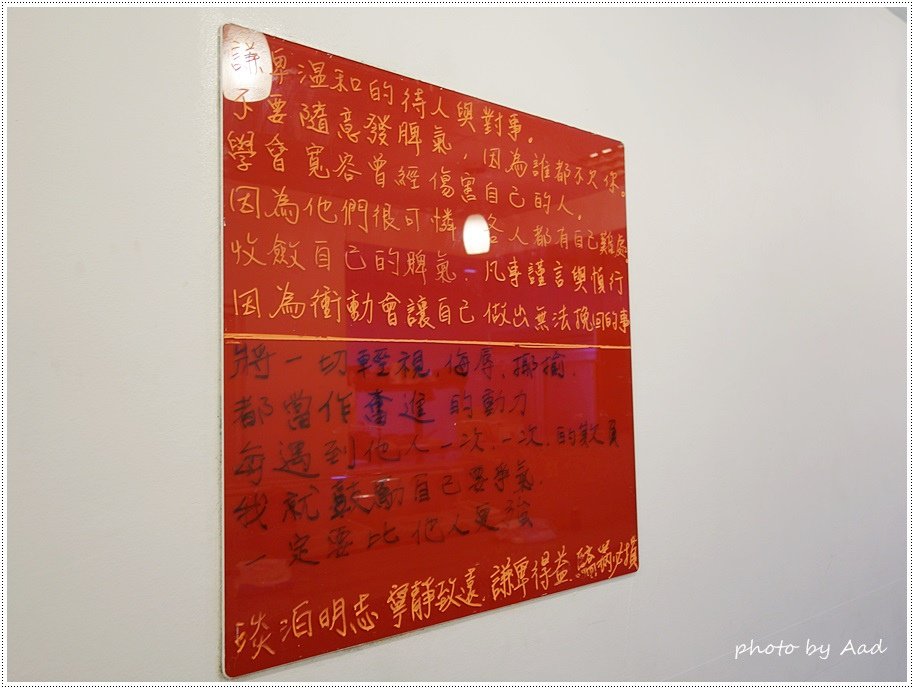 謙卑溫和的待人與對事。
不要隨意發脾氣，因為誰都不欠你。
學會寬容曾經傷害自己的人。
因為他們很可憐，各人都有自己難處
收斂自己的脾氣．凡事謹言與慎行
因為衝動會讓自己做出無法挽回的事
將一切輕視．侮辱．揶揄．
都當作奮進的動力
每遇到他人一次．一次．的欺負
我就鼓勵自己要爭氣．
一定要比他人更強
淡泊明志．寧靜致遠．謙卑得益．驕滿必損
photo by Aad